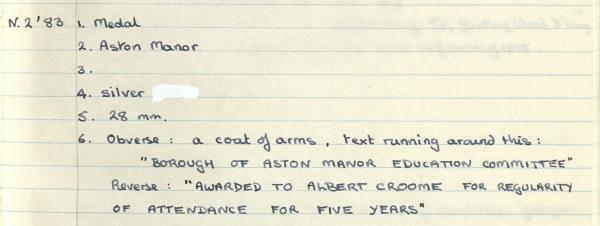 N.2'83 1. Medal
2. Aston Manor
3.
4. silver
5. 28 mm.
6. Obverse : a coat of arms, text running around this :
"BOROUGH OF ASTON MANOR EDUCATION COMMITTEE"
Reverse : "AWARDED TO ALBERT CROOME FOR REGULARITY
OF ATTENDANCE FOR FIVE YEARS"